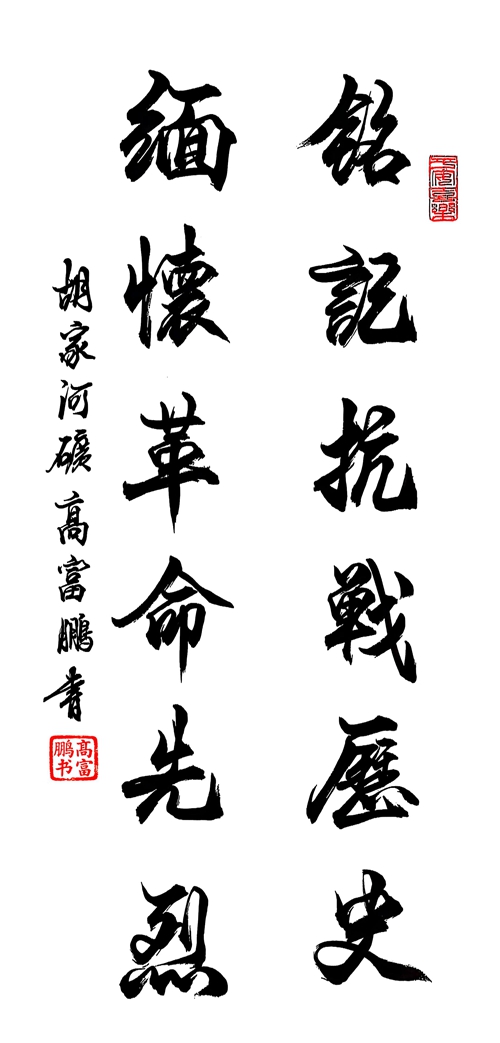 銘記抗戰歷史
緬懷革命先烈
胡家河礦高富鵬書
高富鹏书